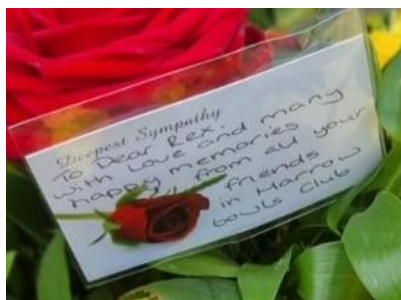 Deepest Sympathy
To Dear Rex.
with Love and many
happy memories
from all your
friends
in Harrow
bowls Club